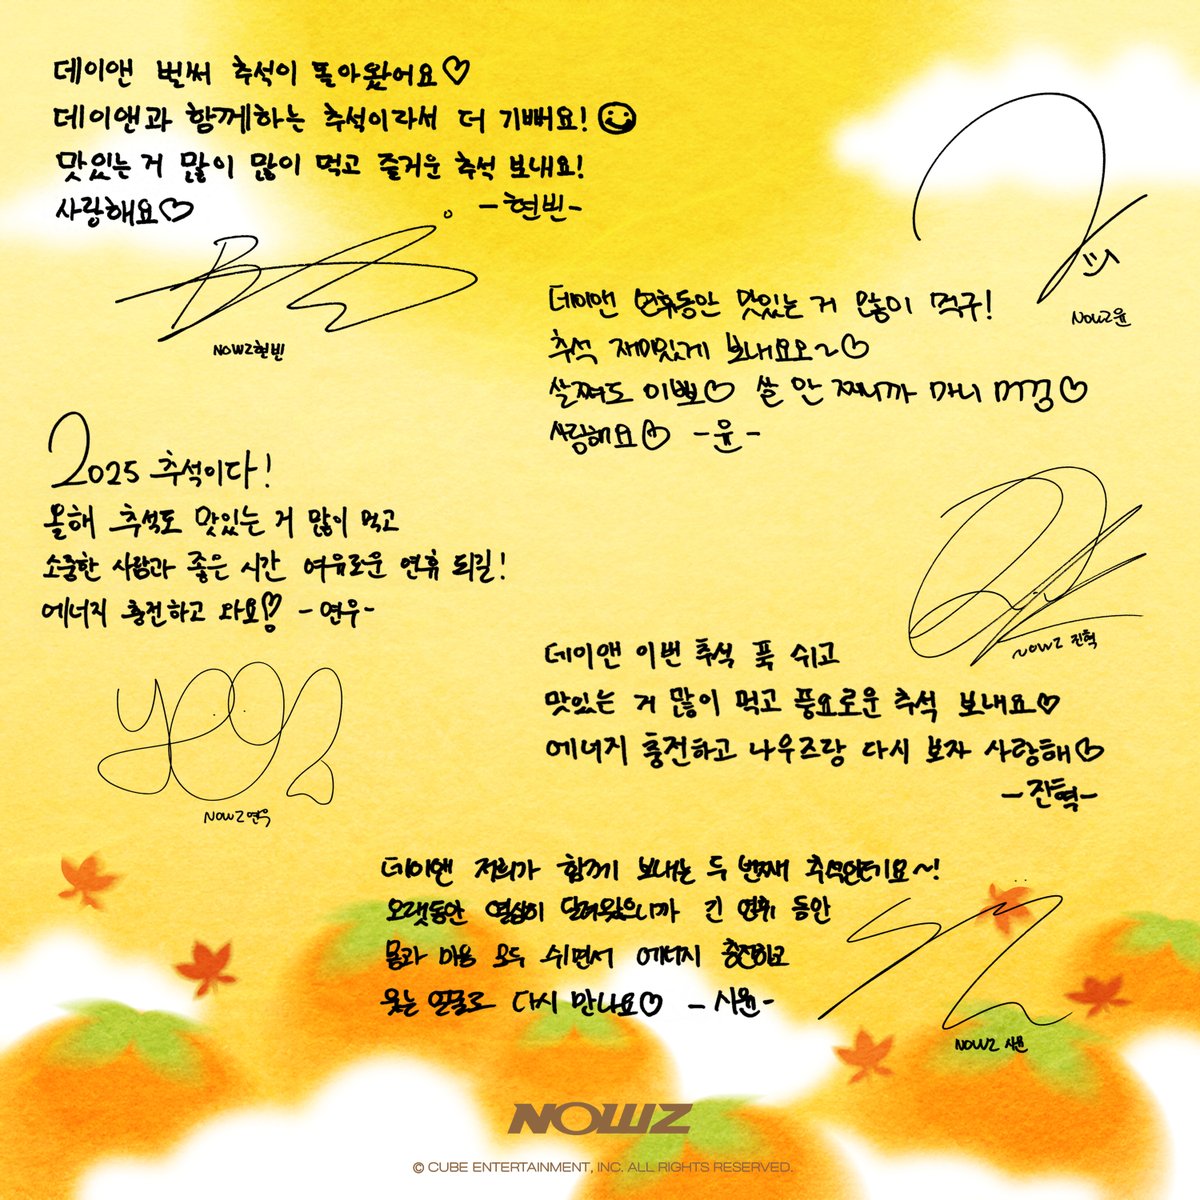 데이앤 벌써 추석이 돌아왔어요♡
데이앤과 함께하는 추석이라서 더 기뻐요!
맛있는 거 많이 많이 먹고 즐거운 추석 보내요!
사랑해요♡ -현빈-
NOWZ현빈
NOWZ윤
데이앤 연휴동안 맛있는 거 많이 먹구!
추석 재미있게 보내요오~♡
살쪄도 이뽀♡ 살 안 찌니까 마니 머겅♡
사랑해요♡ -윤-
2025 추석이다!
올해 추석도 맛있는 거 많이 먹고
소중한 사람과 좋은 시간 여유로운 연휴 되길!
에너지 충전하고 와요 -연우-
NOWZ연우
NOWZ 진혁
데이앤 이번 추석 푹 쉬고
맛있는 거 많이 먹고 풍요로운 추석 보내요♡
에너지 충전하고 나우즈랑 다시 보자 사랑해♡
-진혁-
데이앤 저희가 함께 보내는 두 번째 추석인데요~!
오랫동안 열심히 달려왔으니까 긴 연휴 동안
몸과 마음 모두 쉬면서 에너지 충전하고
웃는 얼굴로 다시 만나요♡ -시윤-
NOWZ 시윤
NOWZ
© CUBE ENTERTAINMENT, INC. ALL RIGHTS RESERVED.